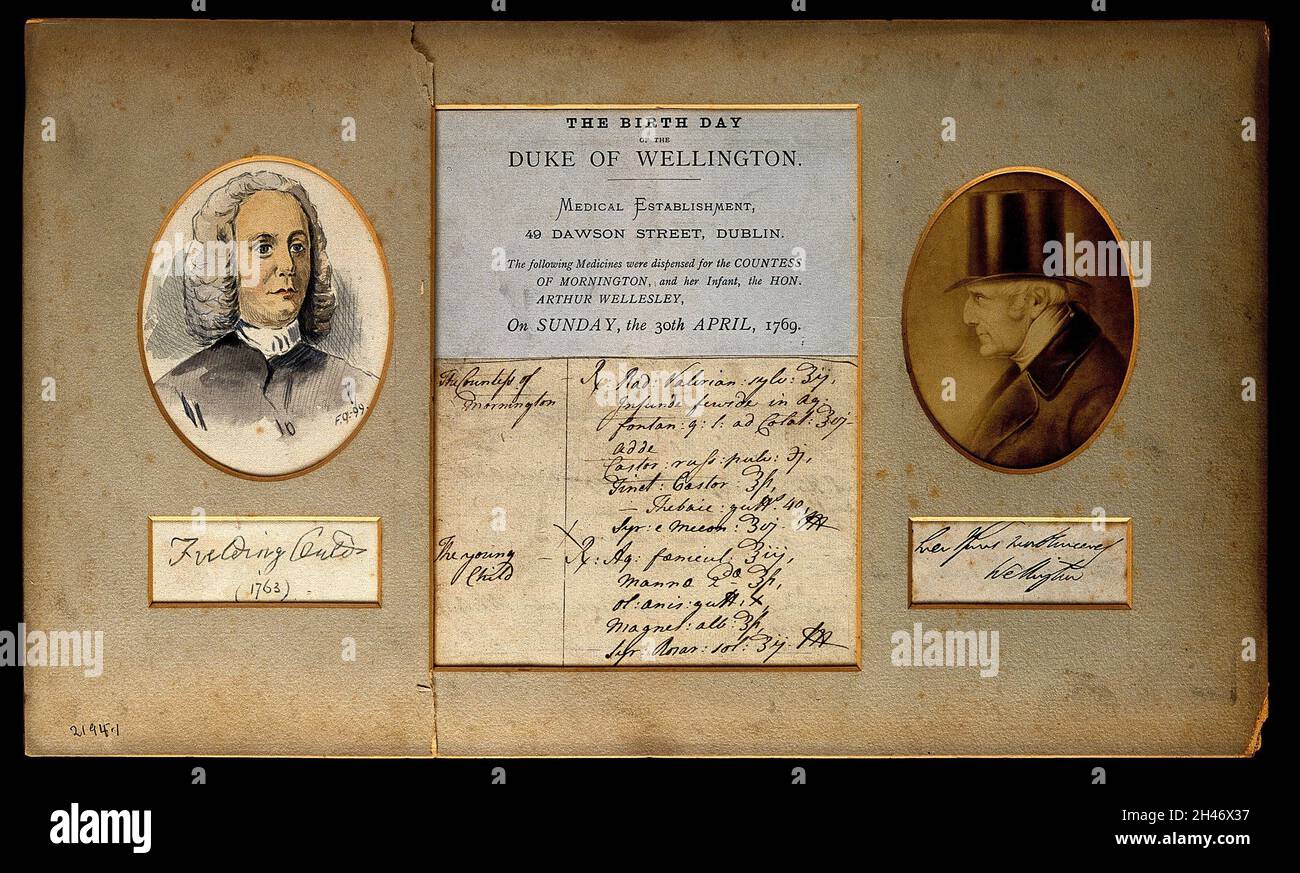 THE BIRTH DAY
OF THE
DUKE OF WELLINGTON.
MEDICAL ESTABLISHMENT,
49 DAWSON STREET, DUBLIN.
The following Medicines were dispensed for the COUNTESS
OF MORNINGTON, and her Infant, the HON.
ARTHUR WELLESLEY,
On SUNDAY, the 30th APRIL, 1769.
The Countess of
Mornington
℞ Rad: Valerian: sylv: ʒij,
Infunde fervide in Aq:
fontan: q: s: ad Colat: ℥vj
adde
Castor: russ: pulv: ℈j,
Tinct: Castor ʒſ,
— Thebaic: gutts 40,
Syr: e Mecon: ʒvj
The young
Child
℞: Aq: fœnicul: ʒiij,
Manna 2da ʒſ,
ol: anis: gutt, x,
Magnes: alb: ʒſ,
Syr: Rosar: sol: ʒij
F.G-99.
Fielding Ould
(1763)
Wellington
2194.1
alamy
alamy
alamy
alamy
a
a
a
a
a
a
a
a
a
a
a
a
a
a
alamy
Image ID: 2H46X37
www.alamy.com